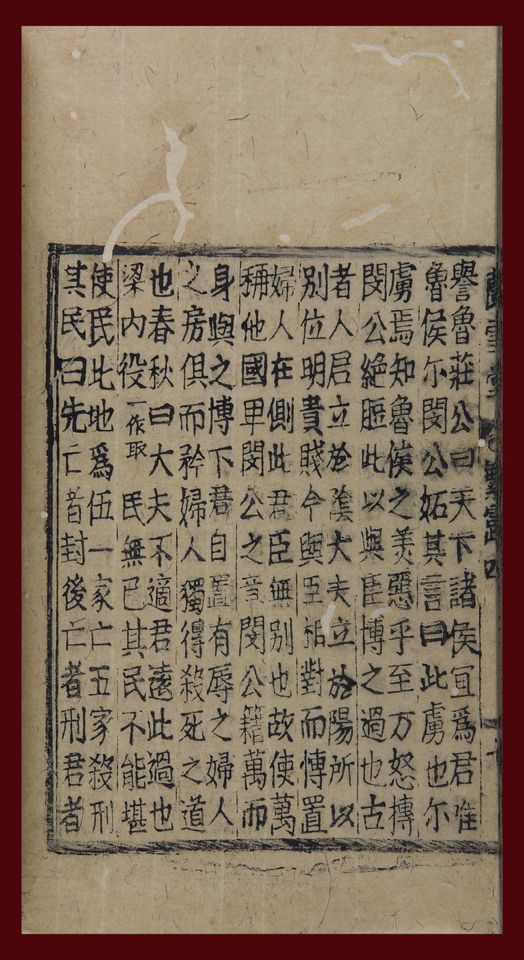 蘭雪堂
繁露四
十
譽魯莊公曰天下諸侯宜爲君唯
魯侯尔閔公妬其言曰此虜也尔
虜焉知魯侯之美惡乎至万怒搏
閔公絶脰此以與臣博之過也古
者人君立於陰大夫立於陽所以
别位明貴賤今與臣相對而慱置
婦人在側此君臣無别也故使萬
稱他國卑閔公之意閔公籍萬而
身與之博下君自置有辱之婦人
之房俱而矜婦人獨得殺死之道
也春秋曰大夫不適君遠此過也
梁内役一作取民無已其民不能堪
使民比地爲伍一家亡五家殺刑
其民曰先亡者封後亡者刑君者